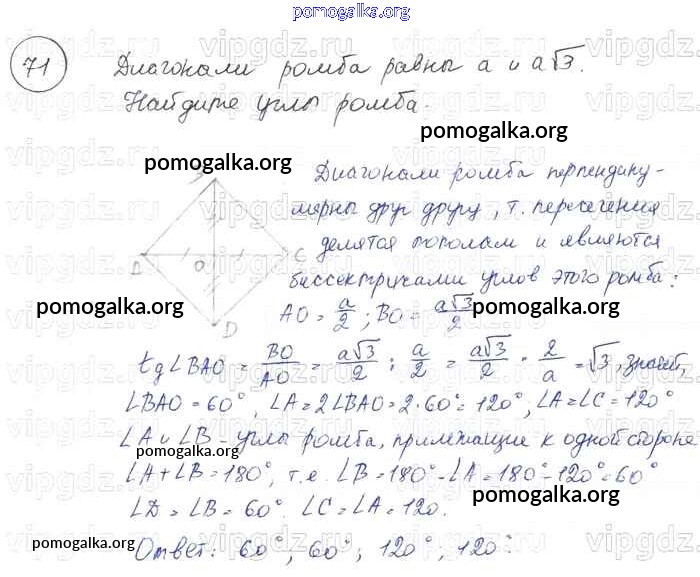 pomogalka.org
71 Диагонали ромба равны a и a√3.
Найдите углы ромба.
pomogalka.org
pomogalka.org
Диагонали ромба перпендику-
лярны друг другу, т. пересечения
делятся пополам и являются
биссектрисами углов этого ромба:
O C
D
pomogalka.org
pomogalka.org
AO = a/2 ; BO = a√3/2
tg∠BAO = BO/AO = a√3/2 : a/2 = a√3/2 · 2/a = √3, значит,
∠BAO = 60°, ∠A = 2∠BAO = 2·60° = 120°, ∠A = ∠C = 120°
∠A и ∠B - углы ромба, прилежащие к одной стороне
pomogalka.org
∠A + ∠B = 180°, т.е. ∠B = 180° - ∠A = 180° - 120° = 60°
∠D = ∠B = 60°. ∠C = ∠A = 120.
pomogalka.org
pomogalka.org
Ответ: 60°; 60°; 120°; 120°.
vipgdz.ru